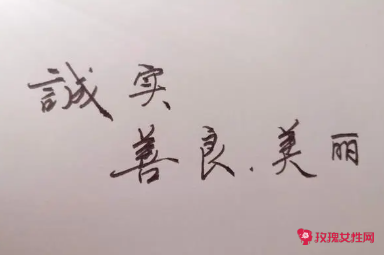 誠实
善良.美丽
玫瑰女性网